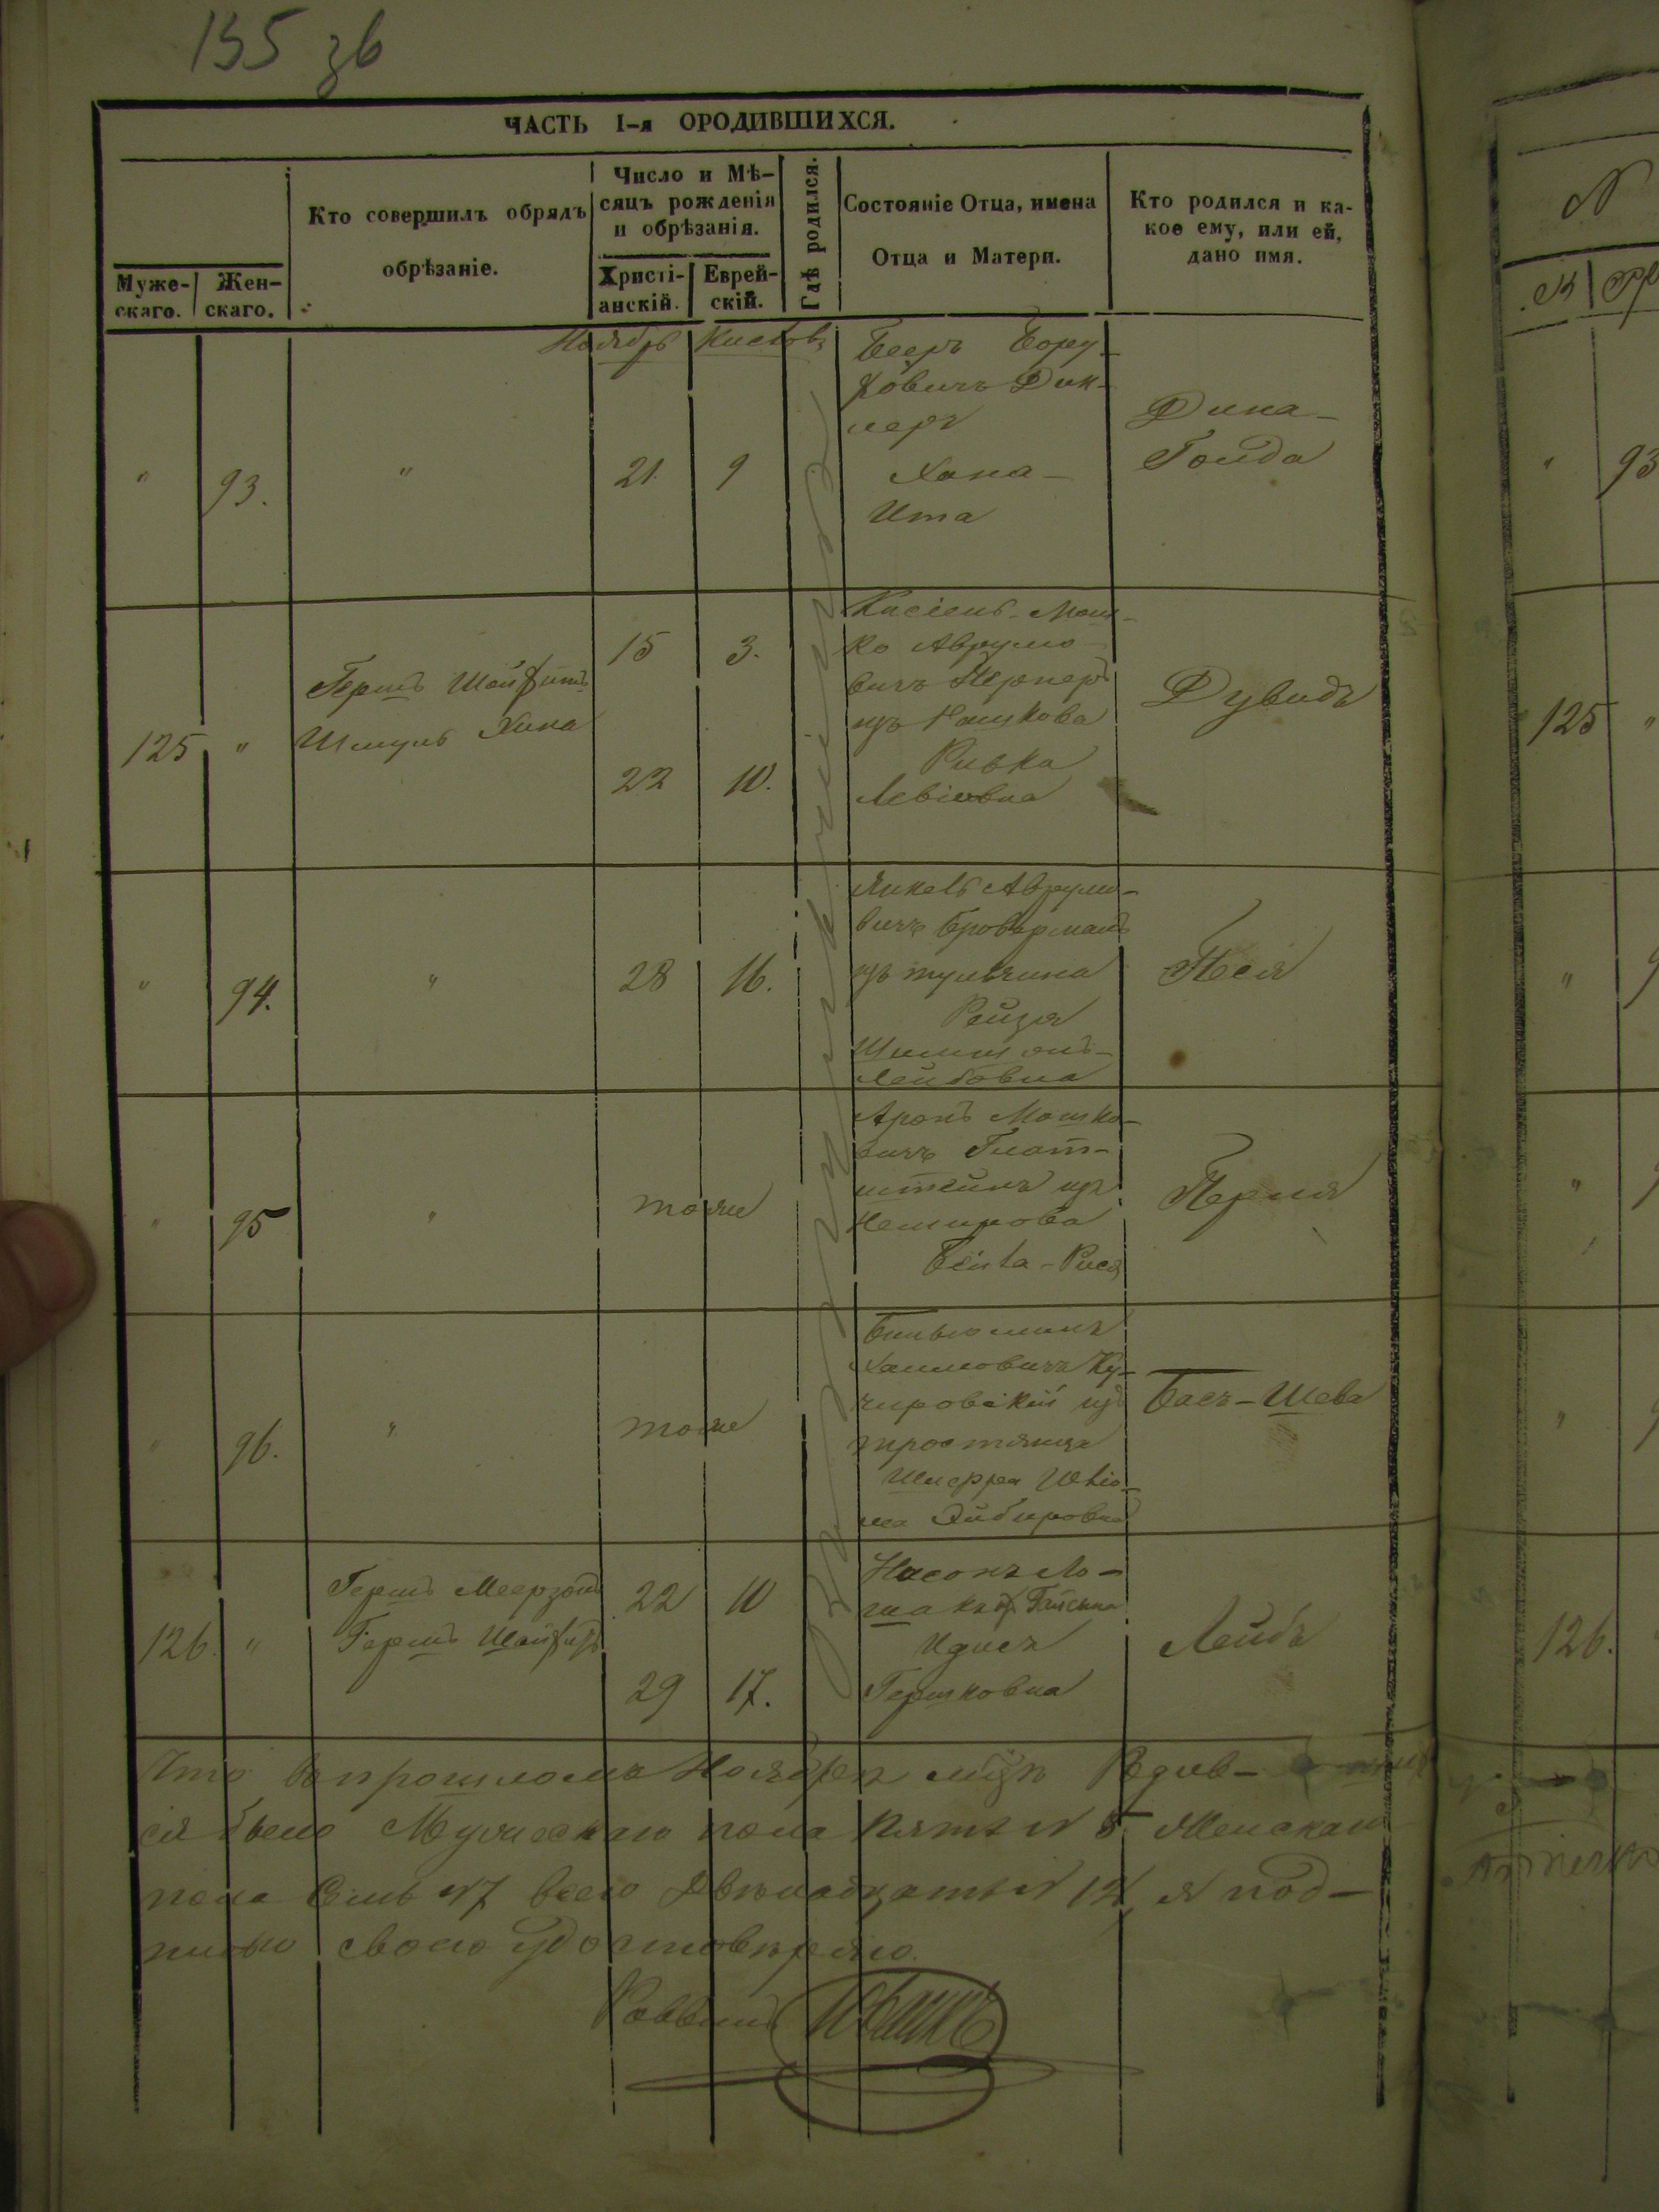 155 зв
ЧАСТЬ I-я ОРОДИВШИХСЯ.
Муже-
скаго.
Жен-
скаго.
Кто совершилъ обрядъ
обрѣзаніе.
Число и Мѣ-
сяцъ рожденія
и обрѣзанія.
Христі-
анскій.
Еврей-
скій.
Гдѣ родился.
Состояніе Отца, имена
Отца и Матери.
Кто родился и ка-
кое ему, или ей,
дано имя.
Ноябрь
"
93.
"
21.
9
Беръ Бору-
ховичъ Дик-
леръ
Хана-
Ита
Дина-
Гоида
125
"
Гершъ
Шмуль Хина
15
3.
22
10.
Кисіель-Мош-
ко Аврумо-
вичъ Лернеръ
изъ Рашкова
Ривка
Левіовна
Дувидъ
"
94.
"
28
16.
Янкель Аврумо-
вичъ Броверманъ
изъ тульчина
Рейзя
Шимшонъ-
Лейбовна
Песя
"
95
"
тоже
Аронъ Мошко-
вичъ
штейнъ изъ
Немирова
Бейла-Рися
Перля
"
96.
"
тоже
Биньоминъ
Хаимовичъ Ку-
чировскій изъ
тростянца
Басъ-Шева
126.
"
Гершъ Меерзонъ
Гершъ
22
10
29
17.
Насонъ Ло-
шакъ Гайсина
Идись
Гершковна
Лейбъ
Что въ прошломъ Ноябрѣ мцѣ
ся было Мужескаго пола пять N 5 Женскаго
пола Семь N7 всего Двенадцать N 12, я под-
писью своею удостовѣряю.
Раввинъ
N
"
93
125
"
"
"
"
126.